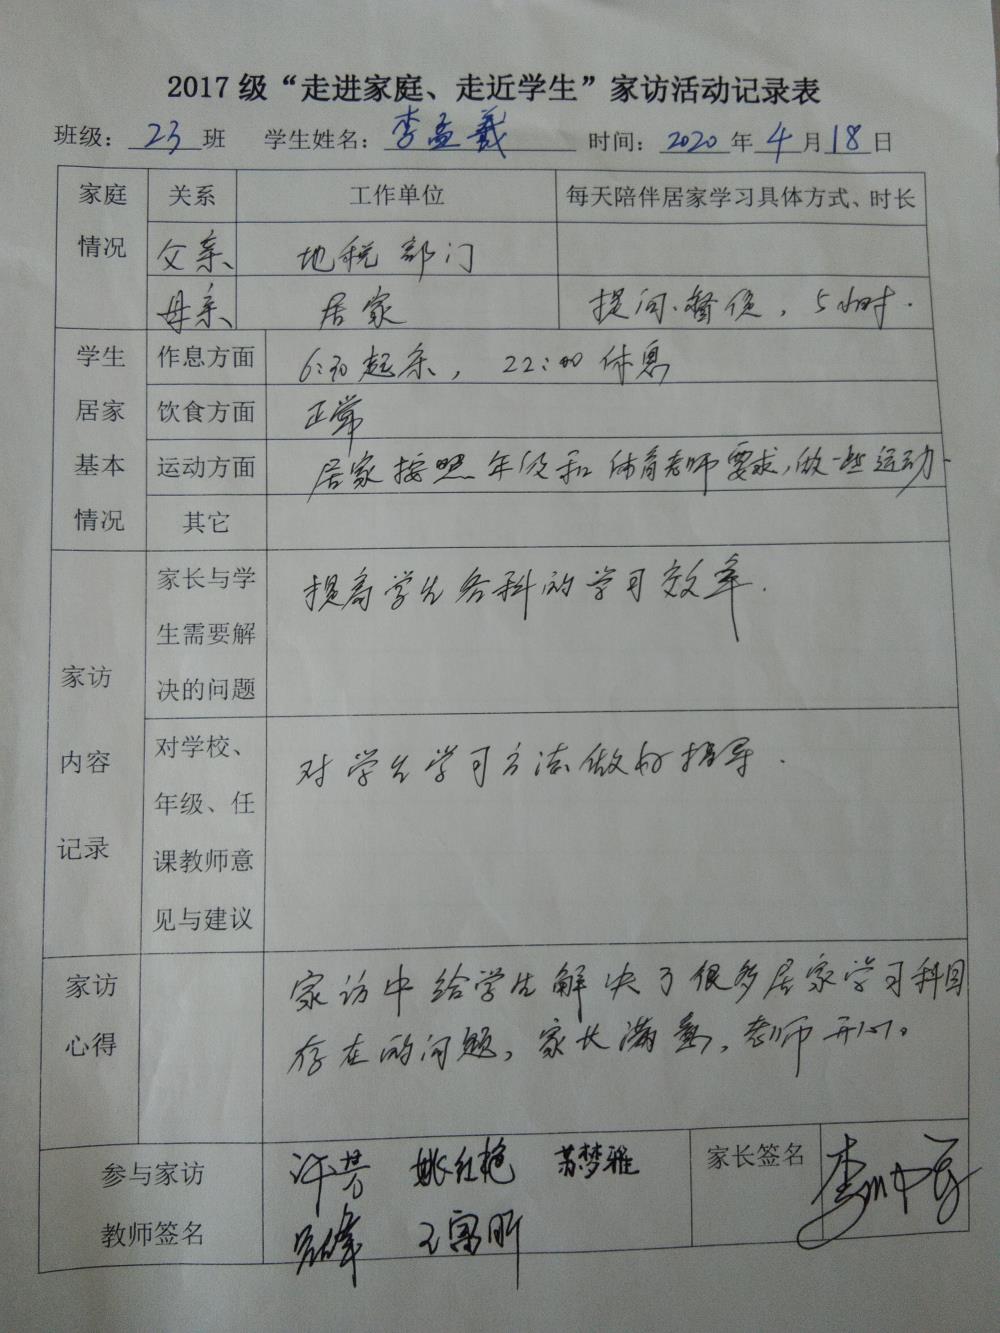 2017级“走进家庭、走近学生”家访活动记录表
班级：23班 学生姓名：李孟羲 时间：2020年4月18日
家庭情况 关系 工作单位 每天陪伴居家学习具体方式、时长
父亲 地税部门
母亲 居家 提问、督促，5小时.
学生居家基本情况
作息方面 6:30起床，22:00休息
饮食方面 正常
运动方面 居家按照年级和体育老师要求，做一些运动.
其它
家访内容记录
家长与学生需要解决的问题
提高学生各科的学习效率.
对学校、年级、任课教师意见与建议
对学生学习方法做好指导.
家访心得
家访中给学生解决了很多居家学习科目
存在的问题，家长满意，老师开心。
参与家访教师签名
姚红艳 苏梦雅
家长签名